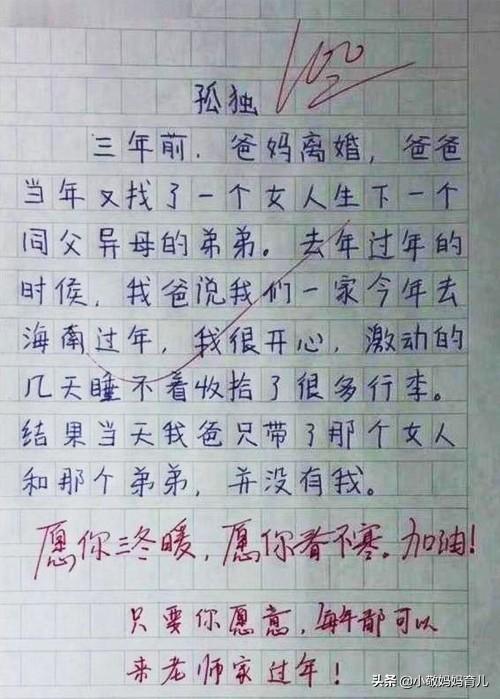 100
孤独
三年前，爸妈离婚，爸爸
当年又找了一个女人生下一个
同父异母的弟弟。去年过年的
时侯，我爸说我们一家今年去
海南过年，我很开心，激动的
几天睡不着收拾了很多行李。
结果当天我爸只带了那个女人
和那个弟弟，并没有我。
愿你三冬暖，愿你春不寒。加油！
只要你愿意，每年都可以
来老师家过年！
头条 @小敬妈妈育儿